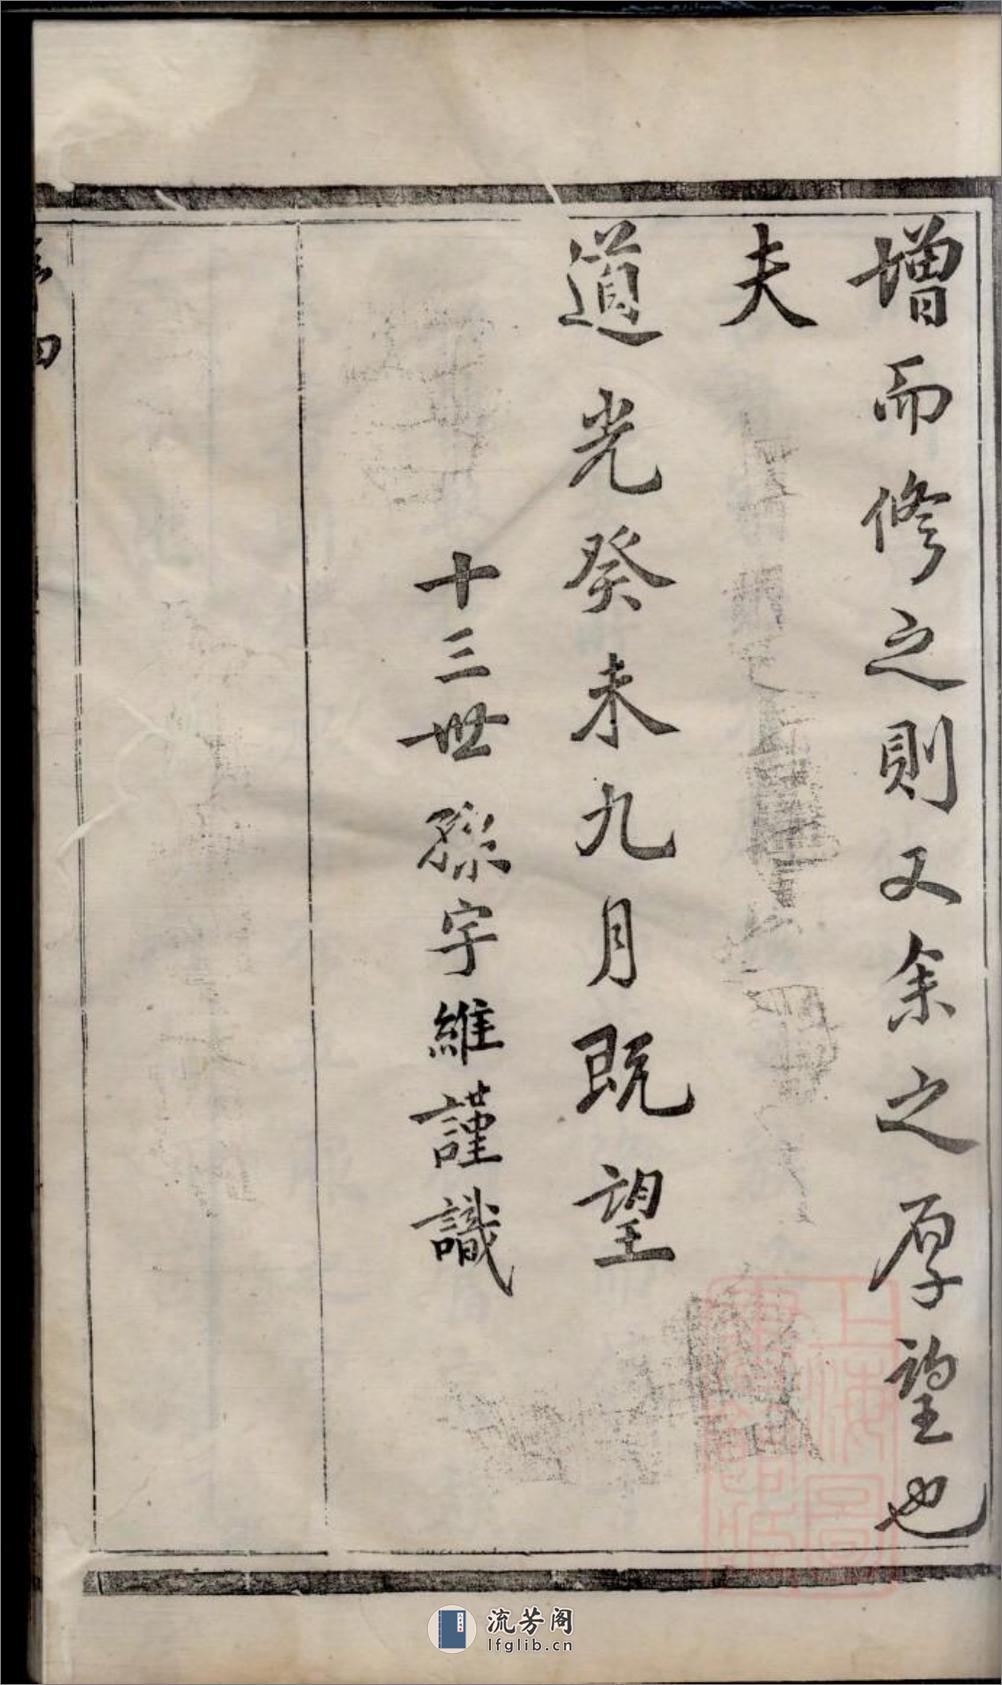 增而修之則又余之厚望也
夫
道光癸未九月既望
十三世孫宇維謹識
序四
上海圖書館藏
流芳阁
lfglib.cn